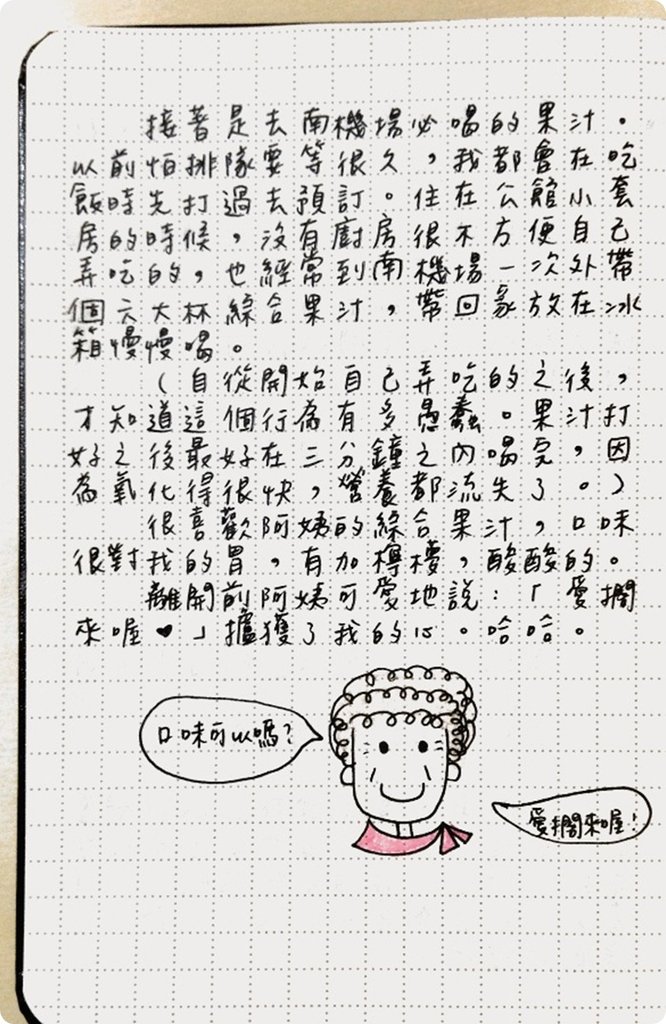 接著是去南機場必喝的果汁。
以前怕排隊要等很久，我都會在吃
飯時先打過去預訂。住在公館小套
房的時候，沒有廚房很不方便自己
弄吃的，也經常到南機場一次外帶
個六大杯綜合果汁，帶回家放在冰
箱慢慢喝。
（自從開始自己弄吃的之後，
才知道這個行為有多愚蠢。果汁打
好之後最好在三分鐘之內喝完，因
為氧化得很快，營養都流失了。）
很喜歡阿姨的綜合果汁，口味
很對我的胃，有加檸檬，酸酸的。
離開前阿姨可愛地說：「愛擱
來喔♥」擄獲了我的心。哈哈。
口味可以嗎？
愛擱來喔！